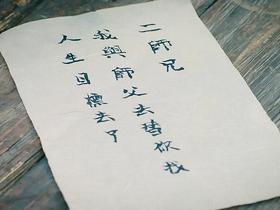 二師兄
我與師父去替你找
人生目標去了